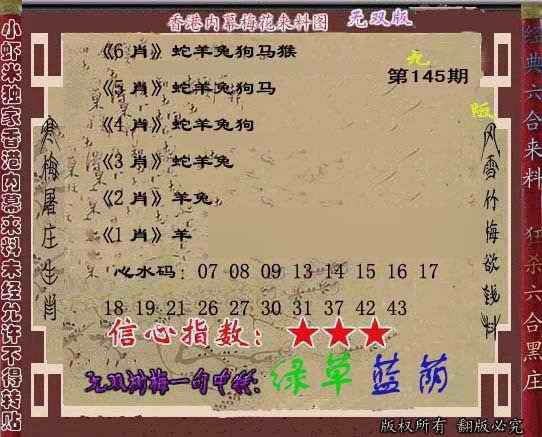 香港内幕梅花来料图 无双版
《6 肖》蛇羊兔狗马猴
第145期
《5 肖》蛇羊兔狗马
《4 肖》蛇羊兔狗
《3 肖》蛇羊兔
《2 肖》羊兔
《1 肖》羊
心水码: 07 08 09 13 14 15 16 17
18 19 21 26 27 30 31 37 42 43
信心指数: ★★★
一句中特: 绿草蓝荫
版权所有 翻版必究
小虾米独家香港内幕来料未经允许不得转贴
寒梅屠庄生肖
风雪竹梅欲钱料
经典六合来料 狂杀六合黑庄